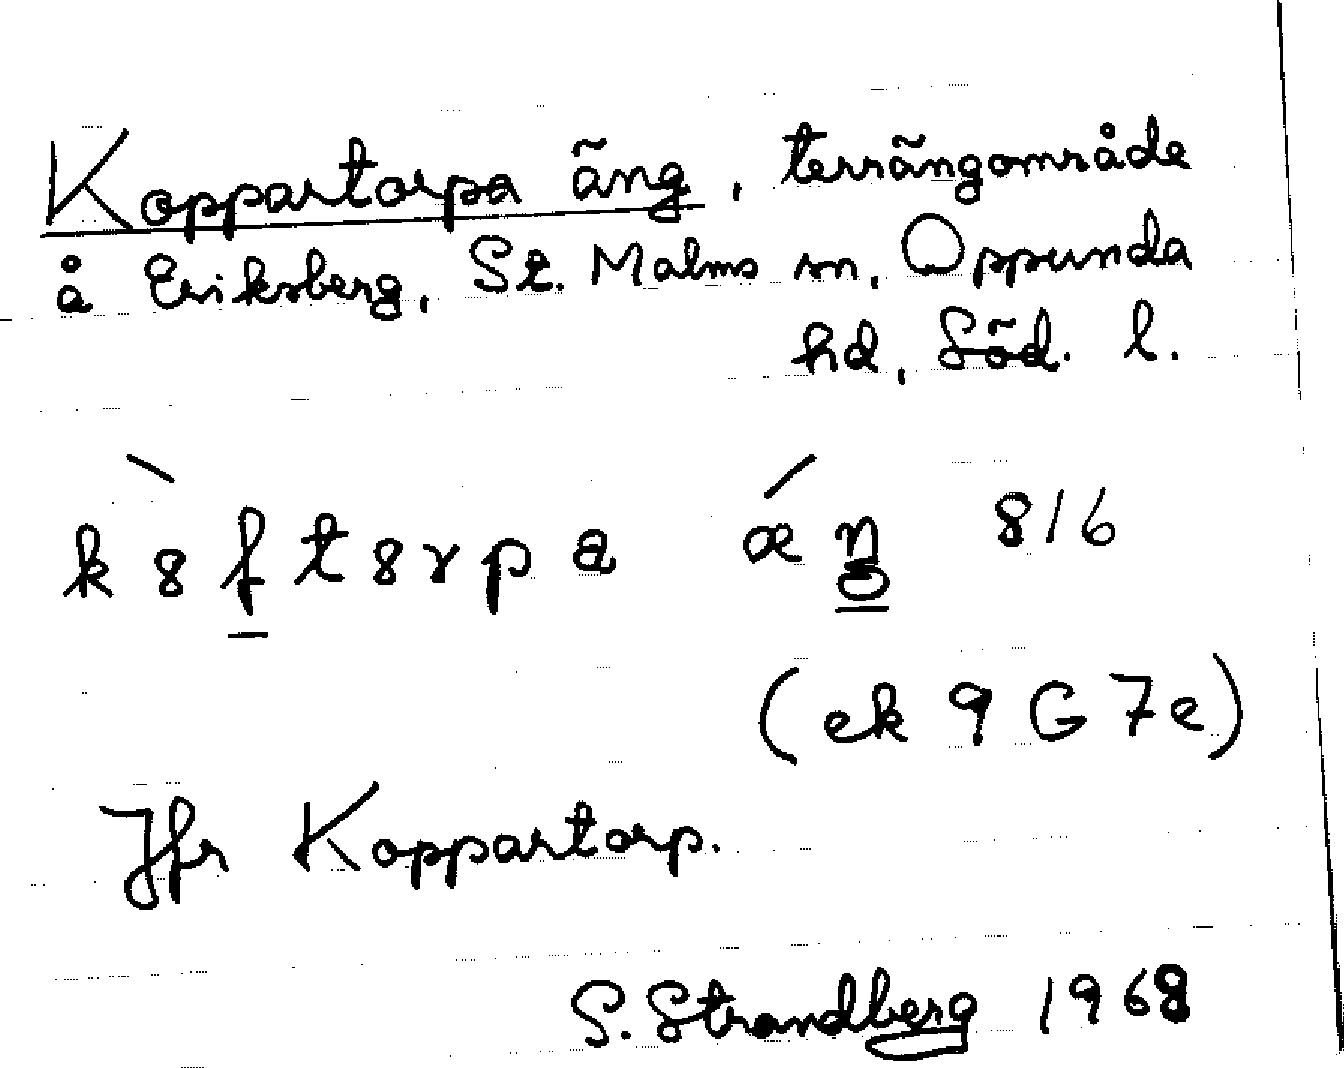 Koppartorpa äng, terrängområde
å Eriksberg, St. Malms sn, Oppunda
hd, Söd. l.
k8ft8rpa æŋ 816
(ek 9 G 7e)
Jfr Koppartorp.
S. Strandberg 1968